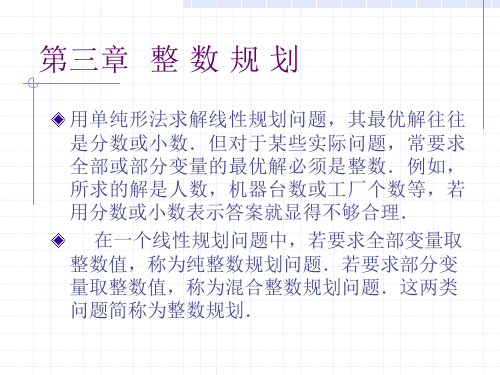 第三章 整 数 规 划
用单纯形法求解线性规划问题，其最优解往往
是分数或小数．但对于某些实际问题，常要求
全部或部分变量的最优解必须是整数．例如，
所求的解是人数，机器台数或工厂个数等，若
用分数或小数表示答案就显得不够合理．
在一个线性规划问题中，若要求全部变量取
整数值，称为纯整数规划问题．若要求部分变
量取整数值，称为混合整数规划问题．这两类
问题简称为整数规划．